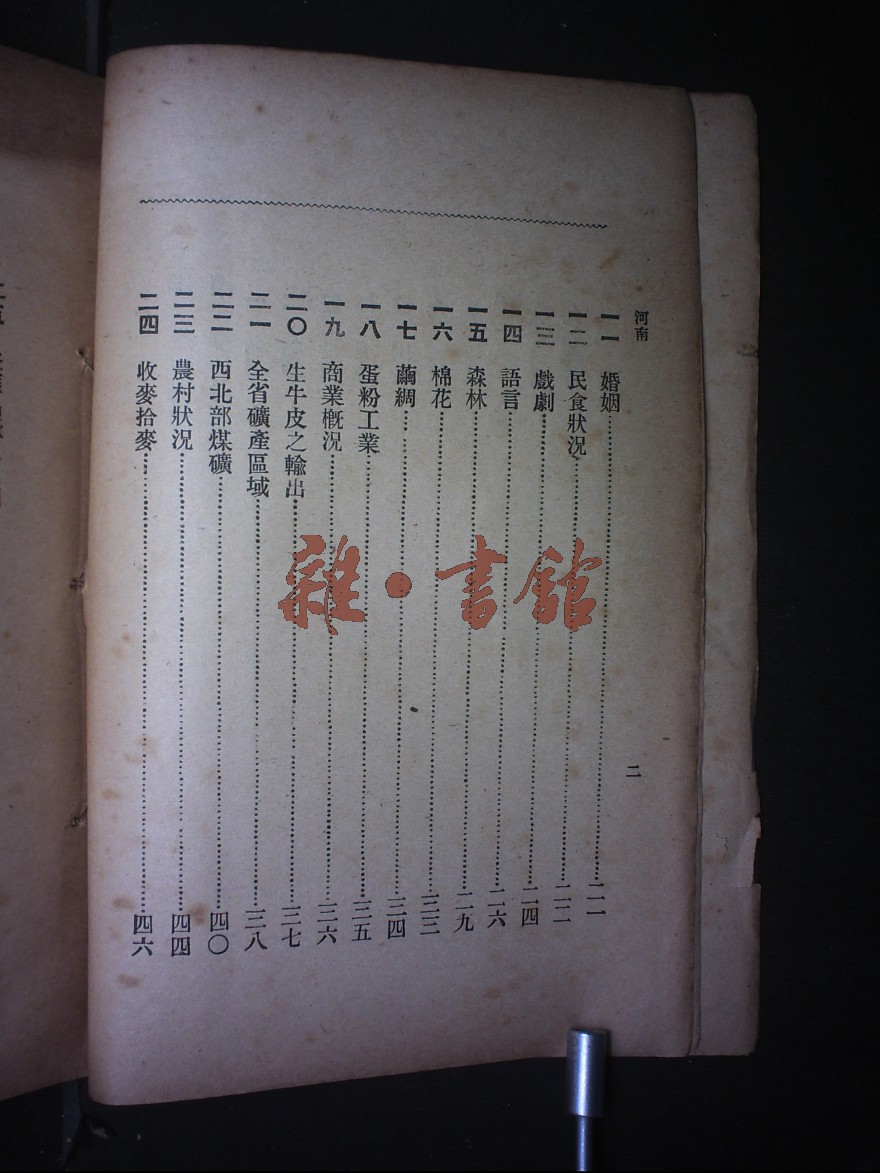 河南
一一　婚姻……二一
一二　民食狀況……二二
一三　戲劇……二四
一四　語言……二六
一五　森林……二九
一六　棉花……三三
一七　繭綢……三四
一八　蛋粉工業……三五
一九　商業概況……三六
二〇　生牛皮之輸出……三七
二一　全省礦產區域……三八
二二　西北部煤礦……四〇
二三　農村狀況……四四
二四　收麥拾麥……四六
二
雜·書館